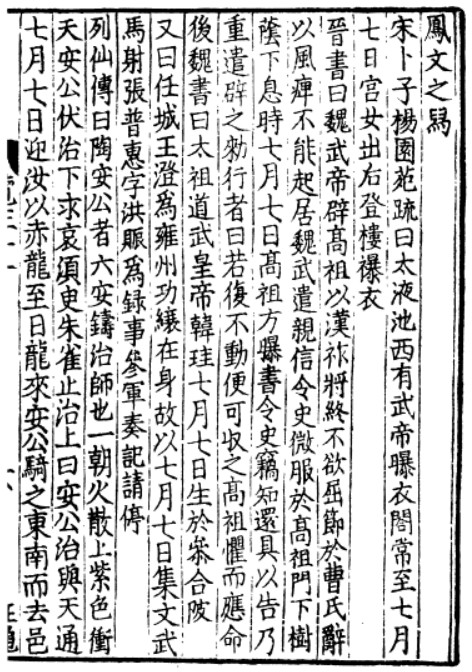 鳳文之舄
宋卜子楊園苑疏曰太液池西有武帝曝衣閣常至七月
七日宫女出后登樓襮衣
晉書曰魏武帝辟髙祖以漢祚將終不欲屈節於曹氏辭
以風痺不能起居魏武遣親信令史微服於髙祖門下樹
蔭下息時七月七日髙祖方曝書令史竊知還具以告乃
重遣辟之勑行者曰若復不動便可収之髙祖懼而應命
後魏書曰太祖道武皇帝諱珪七月七日生於叅合陂
又曰任城王澄爲雍州功縗在身故以七月七日集文武
馬射張普惠字洪賑爲録事叅軍奏記請停
列仙傳曰陶安公者六安鑄冶師也一朝火散上紫色衝
天安公伏冶下求哀湏史朱雀止冶上曰安公冶與天通
七月七日迎汝以赤龍至日龍來安公騎之東南而去邑